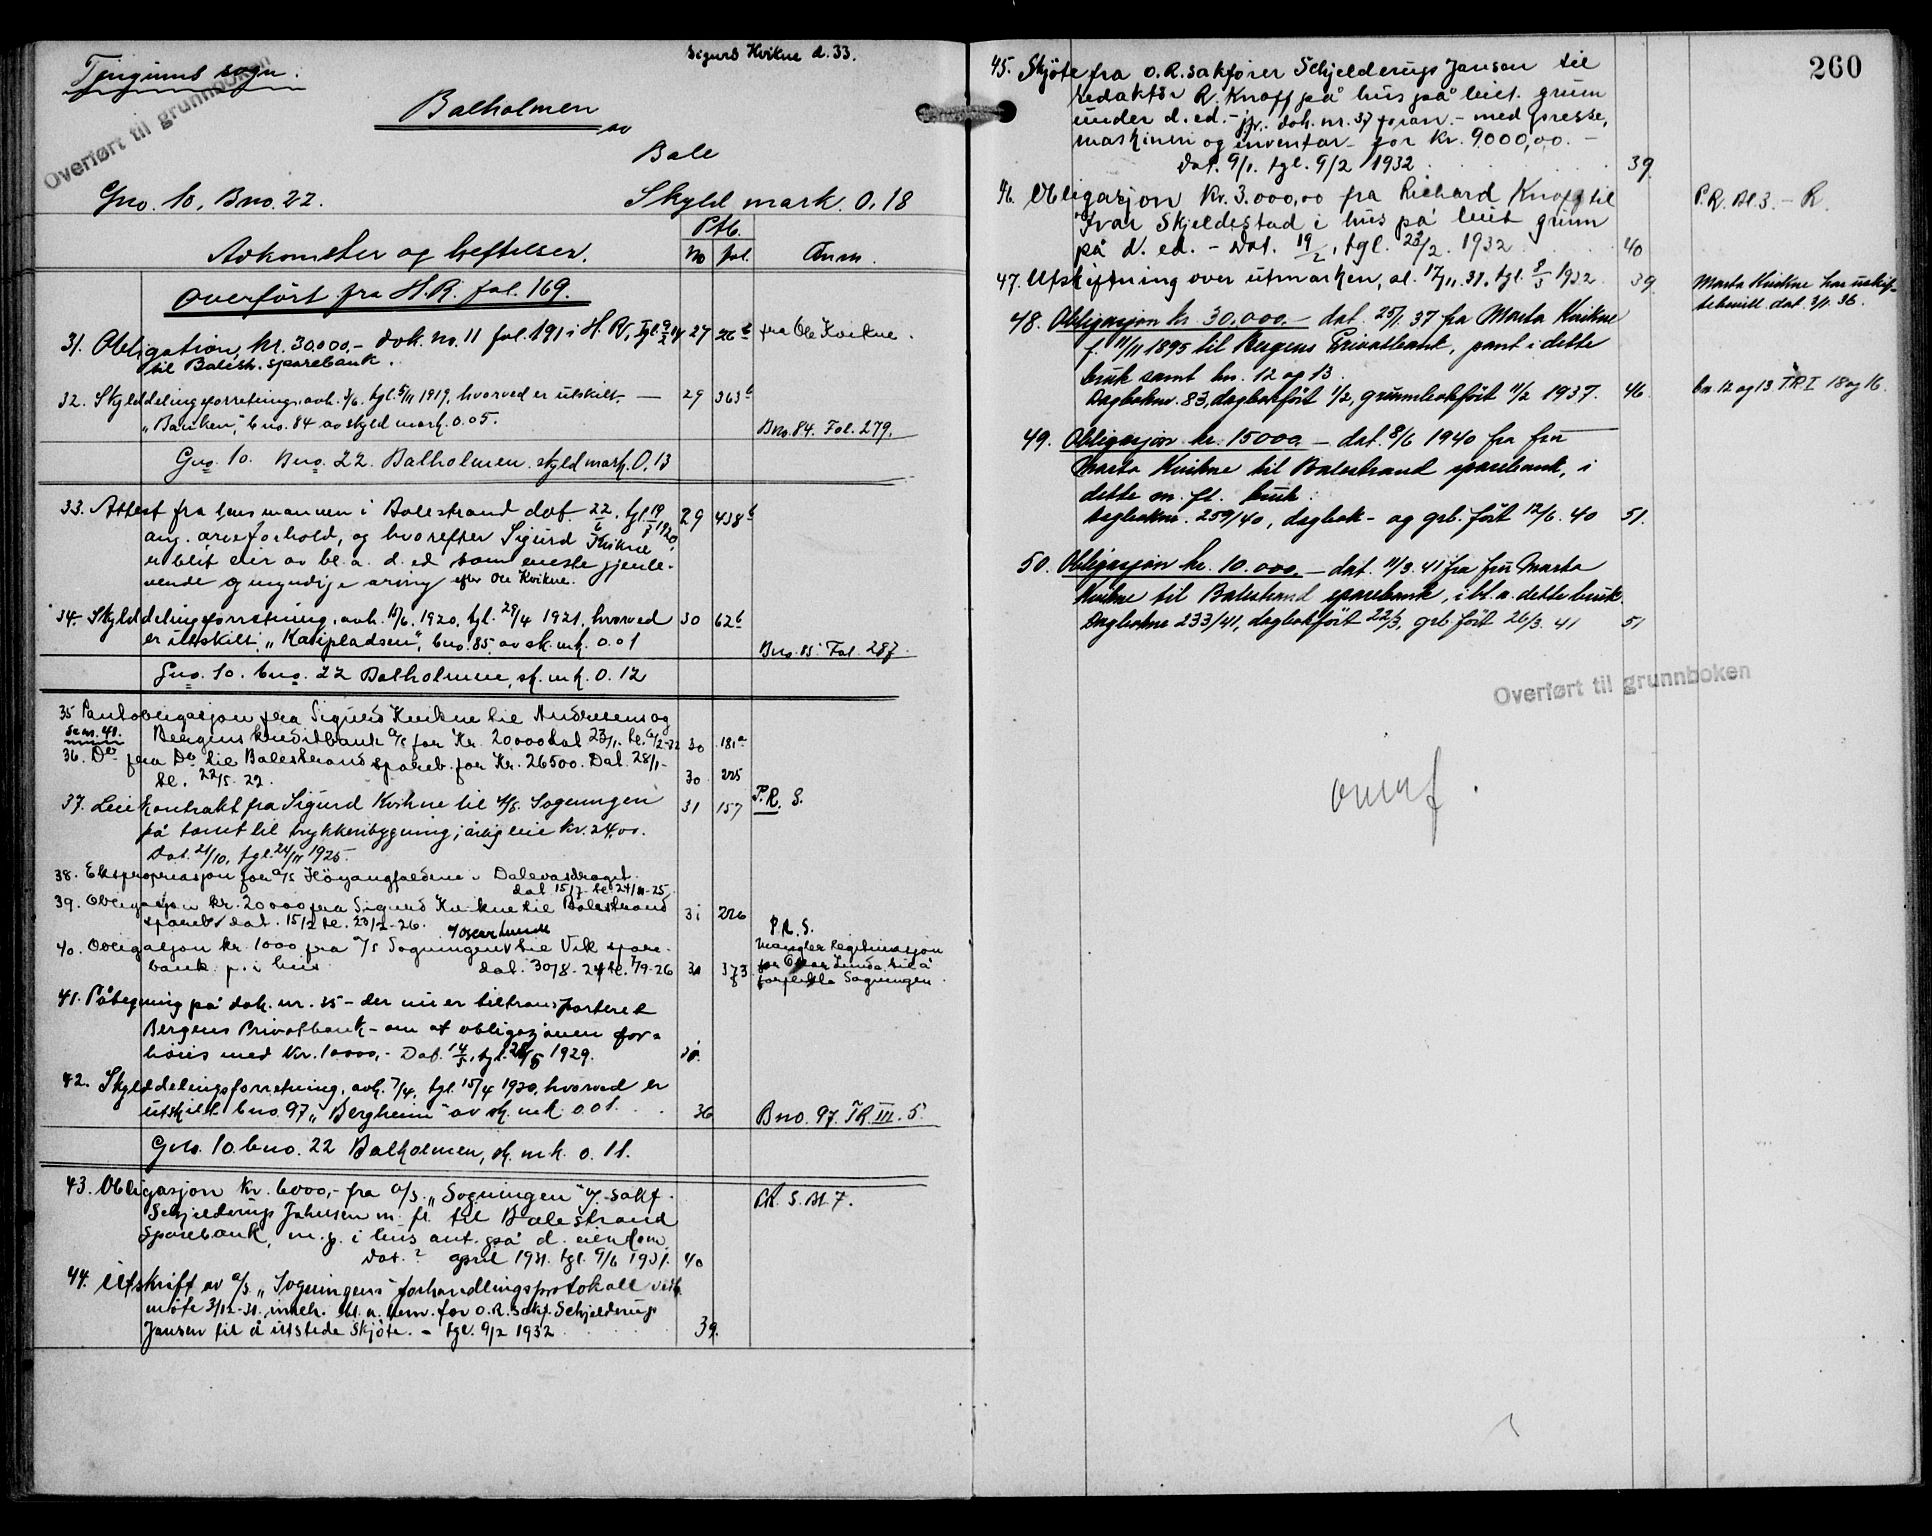 Sigurd Kvikne d. 33.
Tjugums sogn.
Overført til grunnboken
Balholmen
av
Bale
Gno. 10, Bno. 22.
Skyld mark. 0.18
Ptb.
Avkomster og heftelser.
No fol.
Anm.
Overført fra H.R. fol. 169.
31. Obligation, kr. 30000,- dok. no. 11 fol. 191 i H.R., tgl. 9/2 14 27 26b fra Ole Kvikne.
til Balestr. sparebank.
32. Skylddelingsforretning, avh. 3/6. tgl. 5/11 1919, hvorved er utskilt — 29 363b
"Banken", bno. 84 av skyld mark. 0.05.
Bno. 84. Fol. 279.
Gno. 10. Bno. 22. Balholmen. skyld mark. 0.13
33. Attest fra lensmannen i Balestrand dat. 22/6. tgl. 19/8 1920, 29 438b
ang. arveforhold, og hvorefter Sigurd Kvikne
er blit eier av bl. a. d. ed som eneste gjenle-
vende og myndige arving efter Ole Kvikne.
34. Skylddelingsforretning, avh. 15/6. 1920, tgl. 29/4 1921, hvorved 30 62b
er utskilt "Kaipladsen", bno. 85, av sk. mk. 0.01
Bno. 85 Fol. 287.
Gno. 10. bno. 22 Balholmen, sk. mk. 0.12
35 Pantobligasjon fra Sigurd Kvikne til Andresens og
Se nr. 41. Bergens kreditbank a/s for Kr. 20000 dat 23/1. tl. 6/2-22 30 181a
36. Do fra Do til Balestrand spareb. for Kr. 26500. Dat. 28/1-
tl. 22/5. 22. 30 225
37. Leiekontrakt fra Sigurd Kvikne til a/s. Sogningen 31 157 P.R. S.
på tomt til trykkeribygning, årlig leie kr. 24,00.
Dat. 21/10, tgl. 24/11 1925.
38. Ekspropriasjon for a/s Höyangfaldene - Dalevasdraget.
dat 15/7- tl. 24/11-25.
39. Obligasjon kr. 20000 fra Sigurd Kvikne til Balestrand
spareb. dat. 15/2 tl. 20/2-26. 31 226
v/Oscar Lunde
P.R. S.
40. Obligasjon kr. 1000 fra a/s Sogningen til Vik spare-
bank p. i hus dat. 30/8-24 tl. 1/9-26 31 373
Mangler legitimasjon
for Oscar Lunde til å
forplikte Sogningen.
41. Påtegning på dok. nr. 35 - der nu er tiltransporteret
Bergens Privatbank - om at obligasjonen for-
höies med Kr. 10000,- Dat. 14/5, tgl. 1929.
42. Skylddelingsforretning, avh. 7/4, tgl. 15/4 1930, hvorved er
utskilt bno. 97 "Bergheim" av sk. mk. 0.01. 36 Bno. 97. TR. III. 5.
Gno. 10. bno. 22 Balholmen, sk. mk. 0.11.
43. Obligasjon kr. 6000,- fra a/s. "Sogningen" v/ sakf.
Schjelderup Jahnsen m. fl. til Balestrand
Sparebank, m. p. i hus ant. på d. eiendom
Dat. ? april 1931. tgl. 9/6 1931. 40
P.R. S. Bl. 7.
44. Utskrift av a/s "Sogningens" forhandlingsprotokoll vedk.
möte 3/12-31, inneh. bl. a. bem. for o. R. sakf. Schjelderup
Jansen til å utstede skjöte. - tgl. 9/2 1932 39.
260
45. Skjöte fra o. R. sakförer Schjelderup Jansen til
redaktör R. Knoff på hus på leiet grunn
under d. ed. - jfr. dok. nr. 37 foran - med presse,
maskineri og inventar for kr. 9000,00. -
Dat. 9/1. tgl. 9/2 1932 39
46. Obligasjon kr. 3.000,00 fra Richard Knoff til
Ivar Skjeldestad i hus på leiet grunn
på d. ed. - Dat. 19/2, tgl. 23/2. 1932 40
P.R. Bl. 3. - R.
47. Utskiftning over utmarken, sl. 17/11.31. tgl. 8/3 1932. 39
Marta Kvikne har uskif-
tebevill. dat. 3/1. 36.
48. Obligasjon kr. 30.000.- dat. 25/1.37 fra Marta Kvikne
f. 11/11 1895 til Bergens Privatbank, pant i dette
bruk samt bn. 12 og 13.
Dagboknr. 83, dagbokfört 1/2, grunnbokfört 11/2 1937. 46. bn. 12 og 13 TR I 18 og 16.
49. Obligasjon kr. 15000.- dat. 8/6 1940 fra fru
Marta Kvikne til Balestrand sparebank, i
dette m. fl. bruk.
Dagboknr. 259/40, dagbok- og grb. fört 12/6. 40 51.
50. Obligasjon kr. 10.000.- dat. 11/3. 41 fra fru Marta
Kvikne til Balestrand sparebank, i bl. a. dette bruk.
Dagboknr 233/41, dagbokfört 22/3, grb. fört 26/3. 41 51
Overført til grunnboken